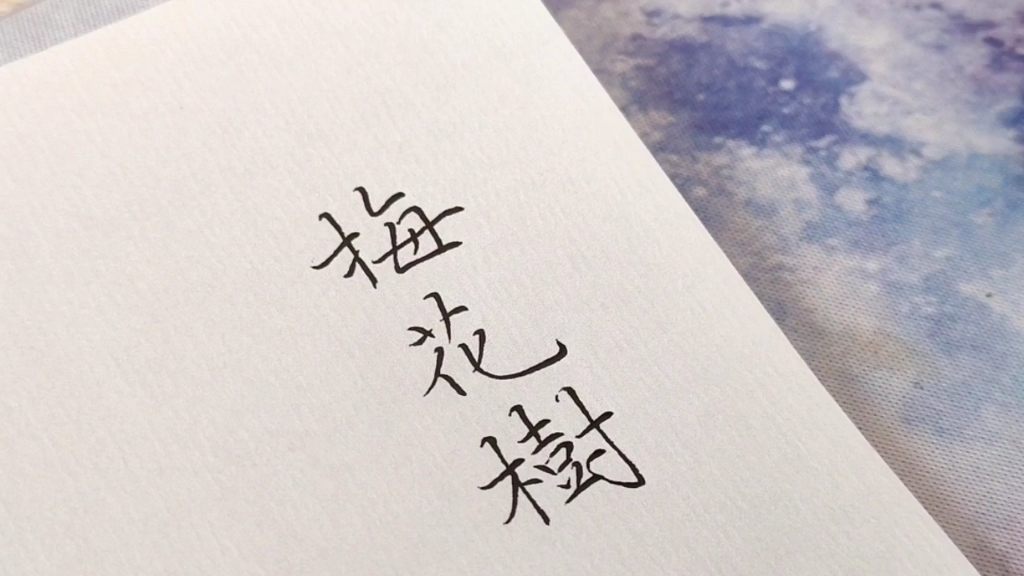 梅花樹